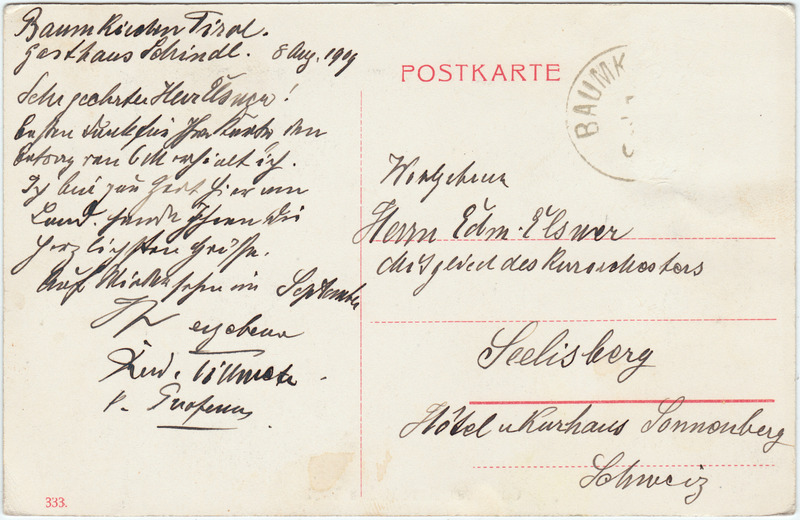 Baumkirchen Tirol.
Gasthaus Schindl. 8 Aug. 1909
Sehr geehrter Herr Elsner!
besten Dank für Ihre Karte den
Betrag von 6 M erhielt ich.
Ich bin zur Zeit hier am
Land. sende Ihnen die
herzlichsten Grüße.
Auf Wiedersehn im September
Ihr ergebener
Ferd.
POSTKARTE
BAUMK
Wohlgeboren
Herrn Edm. Elsner
Mitglied des Kurorchesters
Seelisberg
Hôtel u Kurhaus Sonnenberg
Schweiz
333.